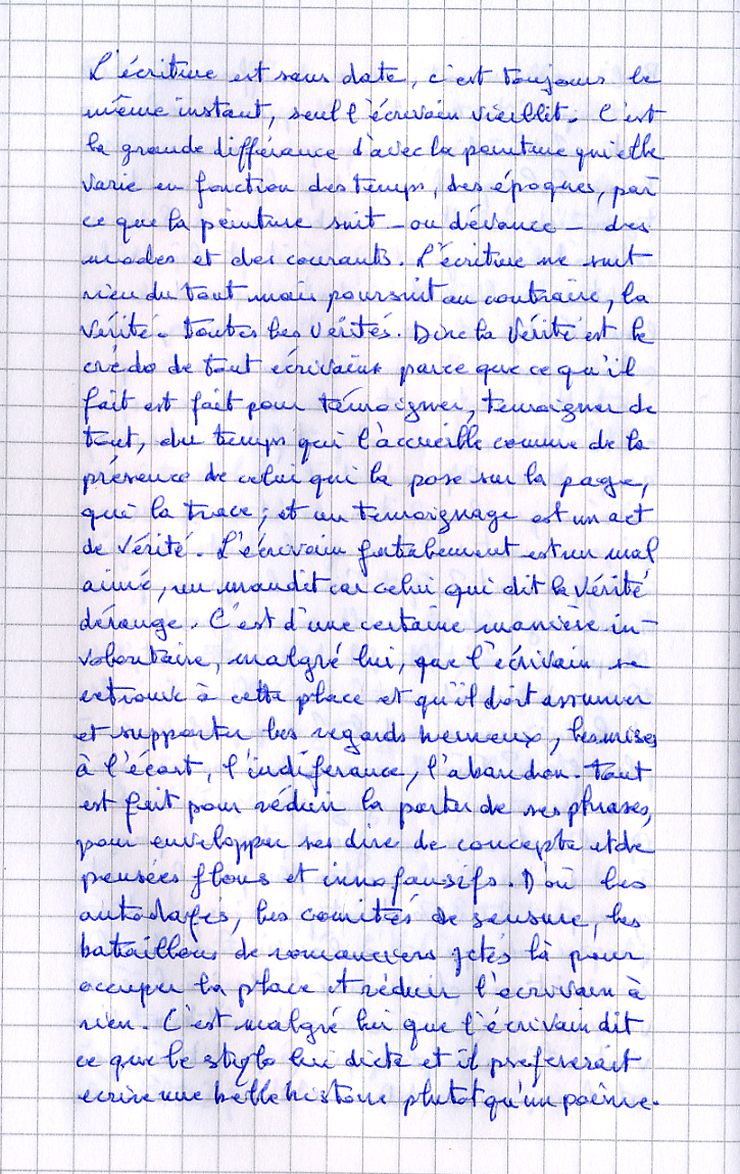 L'écriture est sans date, c'est toujours le
même instant, seul l'écrivain vieillit. C'est
la grande différance d'avec la peinture qui elle
varie en fonction des temps, des époques, par
ce que la peinture suit - ou dévance - des
modes et des courants. L'écriture ne suit
rien du tout mais poursuit au contraire, la
vérité. Toutes les vérités. Dire la vérité est le
crédo de tout écrivains parce que ce qu'il
fait est fait pour témoigner, temoigner de
tout, du temps qui l'accueille comme de la
présence de celui qui la pose sur la page,
qui la trace ; et un temoignage est un act
de vérité. L'écrivain fatalement est un mal
aimé, un maudit car celui qui dit la vérité
dérange. C'est d'une certaine manière in-
volontaire, malgré lui, que l'écrivain se
retrouve à cette place et qu'il doit assumer
et supporter les regards haineux, les mises
à l'écart, l'indiferance, l'abandon. Tout
est fait pour réduir la portée de ses phrases,
pour envelopper ses dire de concepts et de
pensées flous et innofansifs. D'où les
autodafés, les comités de sensure, les
bataillons de romanciers jetés là pour
occuper la place et réduir l'écrivain à
rien. C'est malgré lui que l'écrivain dit
ce que le stylo lui dicte et il prefererait
ecrire une belle histoire plutot qu'un poème.